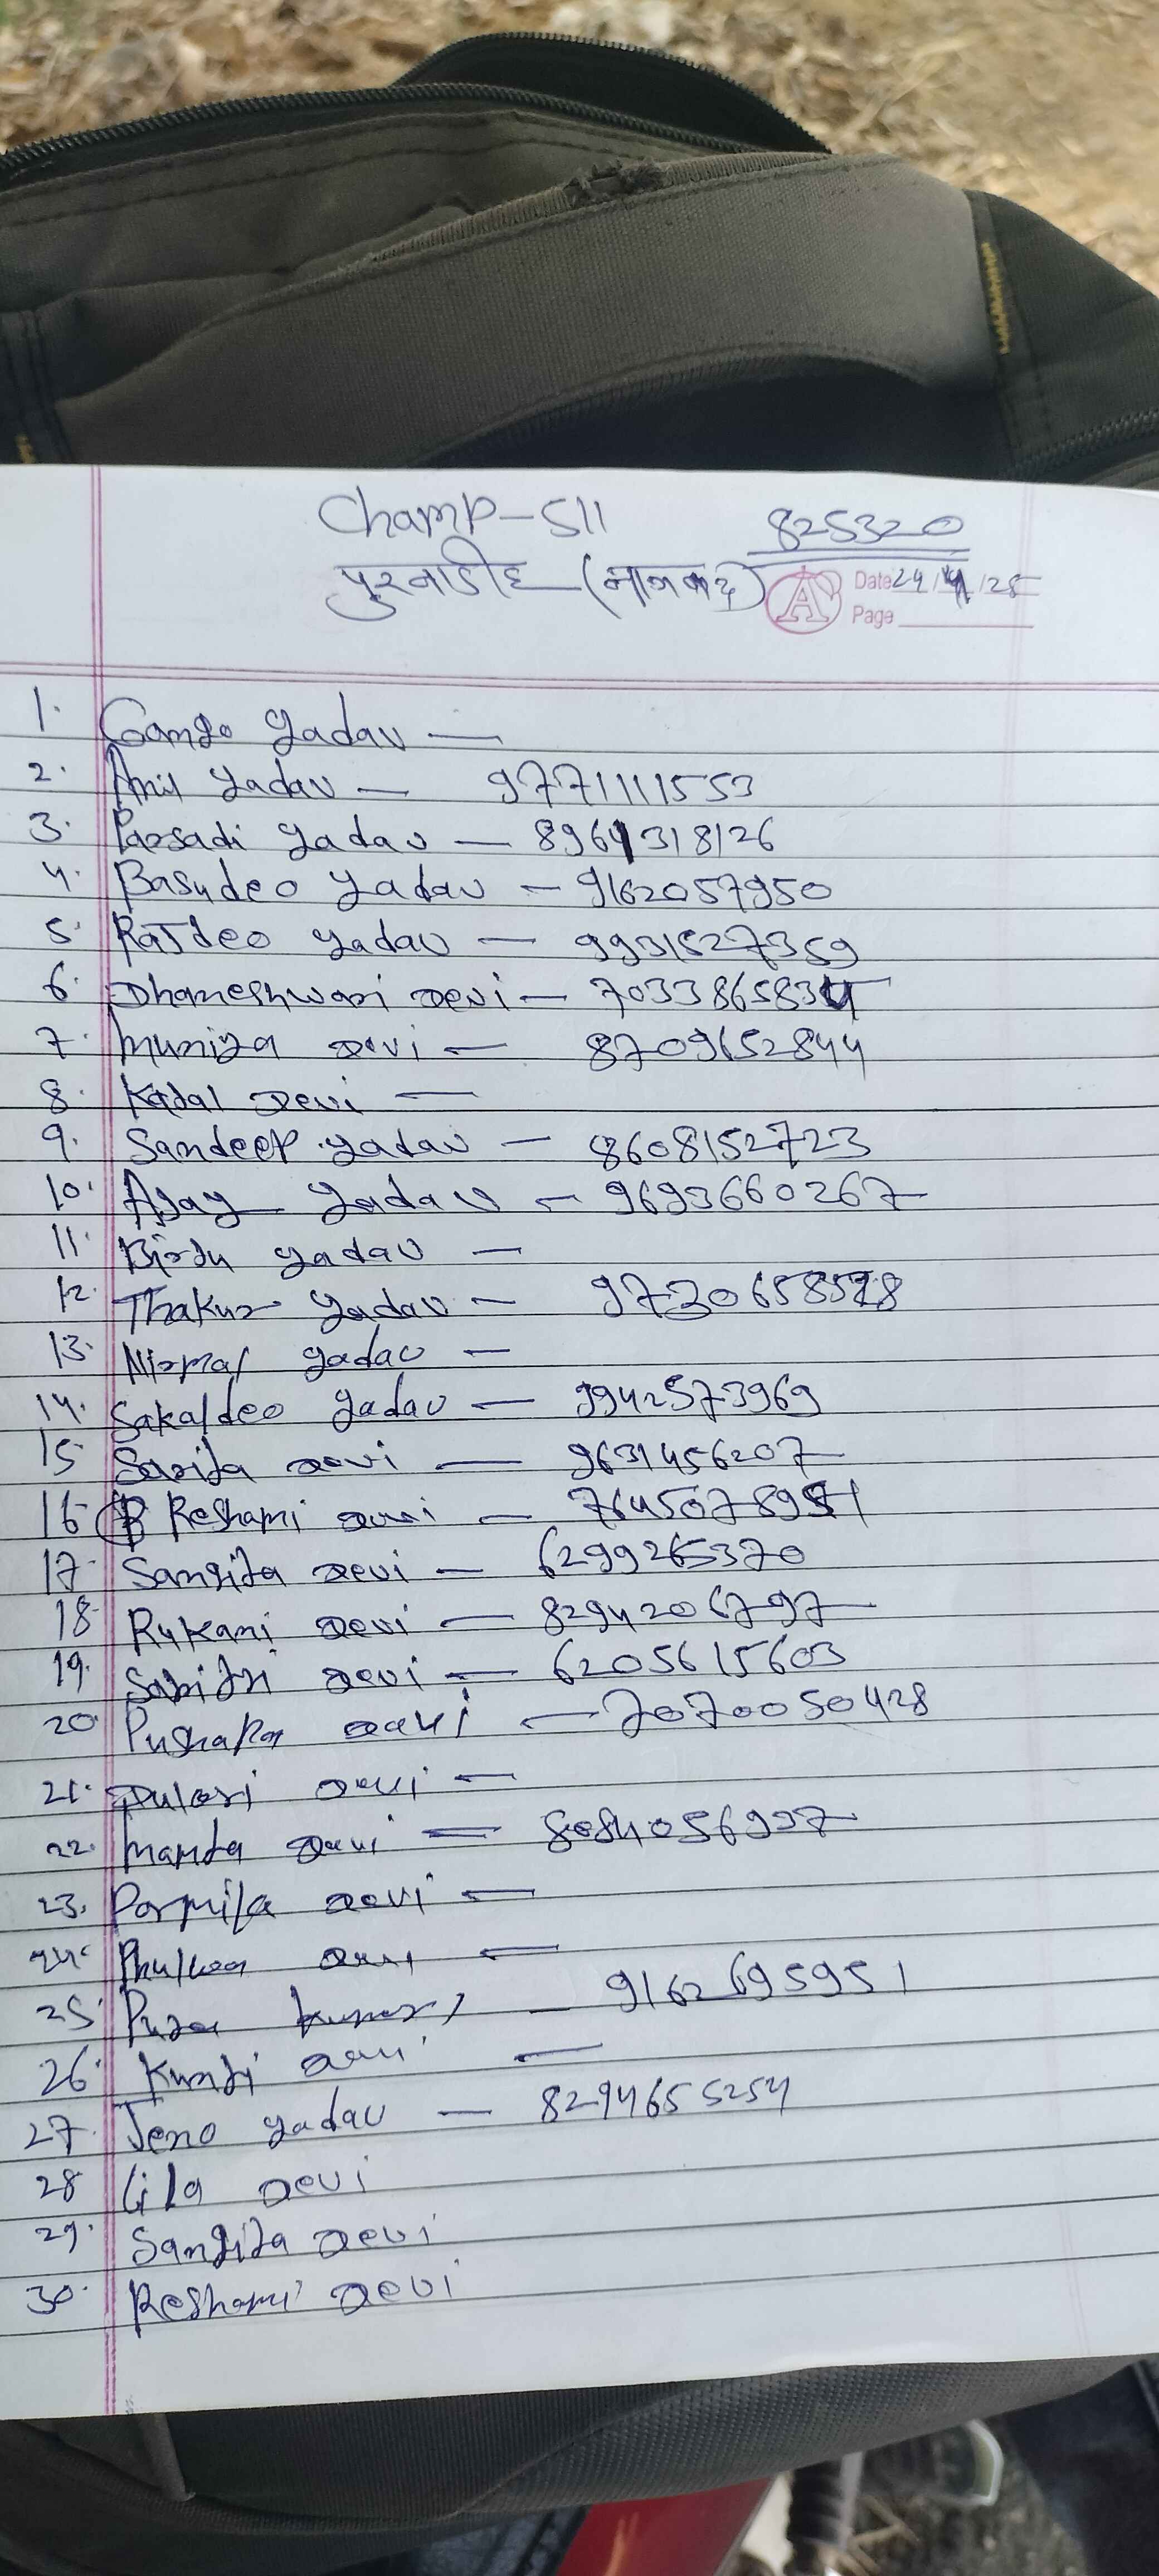 Champ-511
825320
पुरनाडीह (नाजकद)
Date 24/4/25
Page
1. Gango yadav —
2. Anil yadav — 9771111553
3. Parsadi yadav — 8964318126
4. Basudeo yadav — 9162057950
5. RaJdeo yadav — 9931527359
6. Dhaneshwari Devi — 7033865834
7. Muniya Devi — 8709652844
8. Kajal Devi —
9. Sandeep yadav — 8608152723
10. Ajay yadav — 9693660267
11. Birju yadav —
12. Thakur yadav —
13. Nirmal yadav —
14. Sakaldeo yadav — 9942573969
15. Sarita Devi — 9631456207
16. Reshami Devi —
17. Sangita Devi — 6299265370
18. Rukani Devi — 8294206797
19. Sabitri Devi — 6205615603
20. Pushapa Devi — 7070050428
21. Dulari Devi —
22. Mamta Devi — 8084056997
23. Parmila Devi —
24. Phulwa Devi —
25. Puja kumari — 9162695951
26. Kunti Devi —
27. Jeno yadav — 8294655254
28 Lila Devi
29. Sangita Devi
30. Reshami Devi